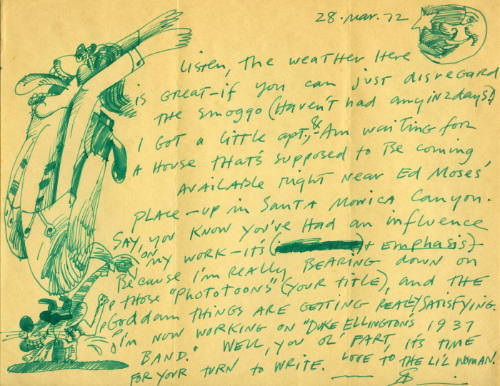 28. Mar. 72
Listen, the weather here
is great - if you can just disregard
the smoggo (Haven't had any in 2 days!)
I got a little apt., & Am waiting for
A House that's supposed to Be coming
Available right near Ed Moses'
place - up in Santa Monica Canyon.
Say, you know you've Had an influence
on my work - it's
emphasis) -
Because I'm really Bearing down on
those "Phototoons" (your title), and the
Goddam things are getting really satisfying.
I'm now working on "Duke Ellington's 1937
Band." Well, you ol' Fart, it's time
for your turn to write. Love to the li'l woman.